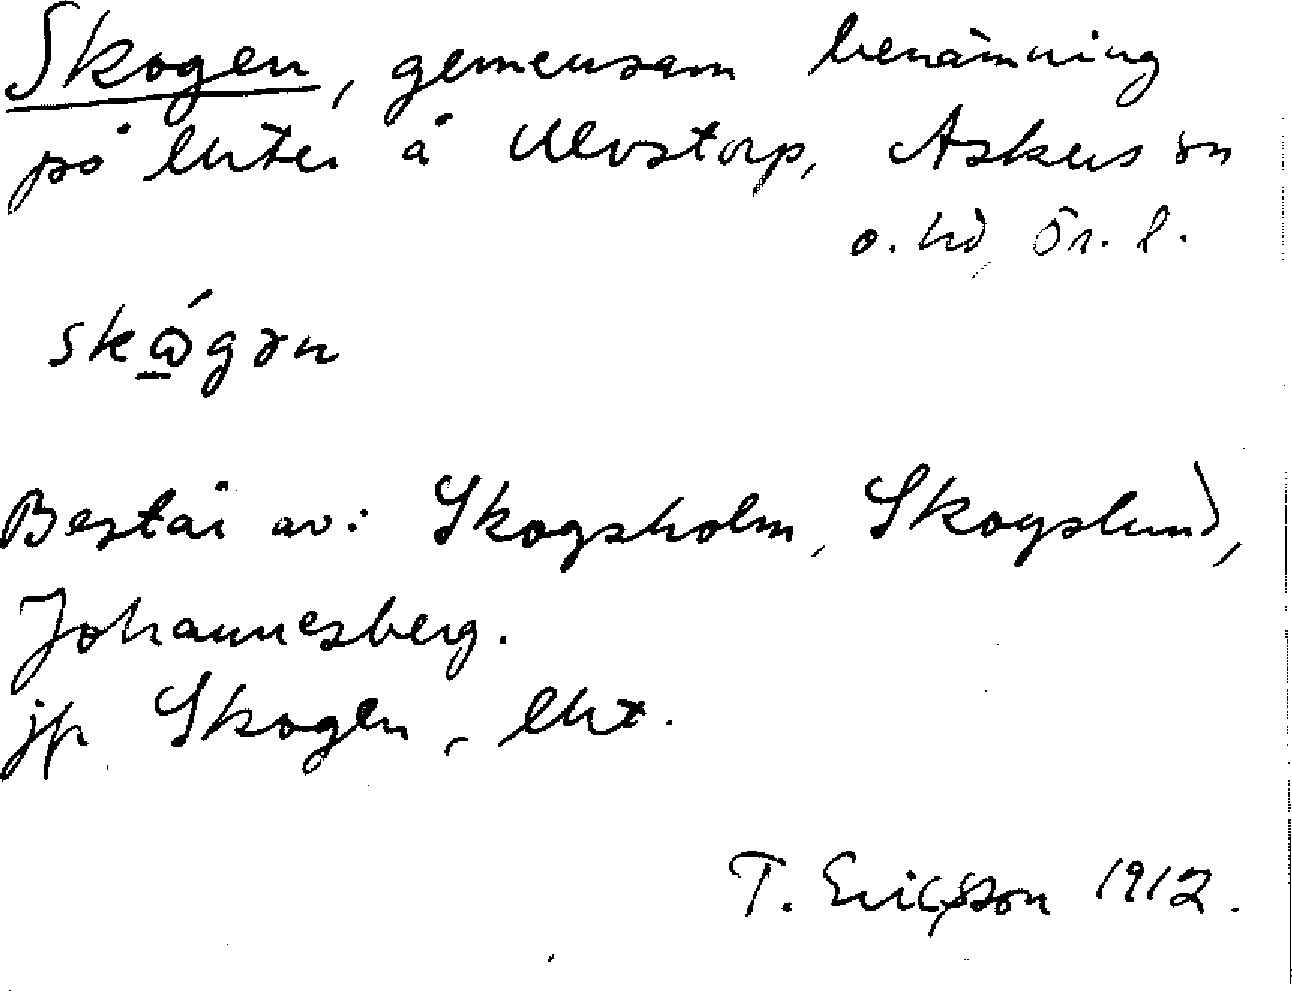 Skogen, gemensam benämning
på lhter å Ulvstorp, Askers sn
o. hd, Ör. l.
skǫ́gən
Består av: Skogsholm, Skogslund,
Johannesberg.
jfr Skogen, lht.
T. Ericsson 1912.